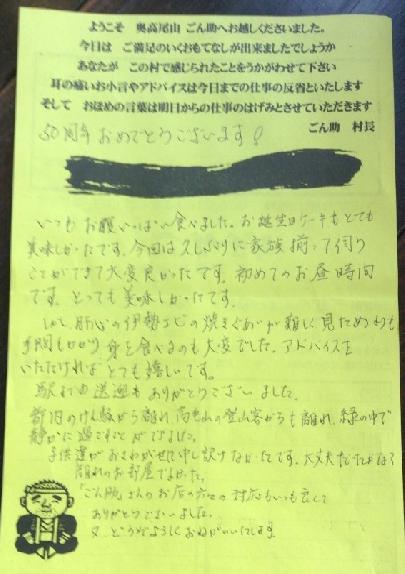 ようこそ　奥高尾山　ごん助へお越しくださいました。
今日は　ご満足のいくおもてなしが出来ましたでしょうか
あなたが　この村で感じられたことをうかがわせて下さい
耳の痛いお小言やアドバイスは今日までの仕事の反省といたします
そして　おほめの言葉は明日からの仕事のはげみとさせていただきます
ごん助　村長
50周年おめでとうございます!
いつもお腹いっぱい食べました。お誕生日ケーキもとても
美味しかったです。今回は久しぶりに家族揃って伺う
ことができて大変良かったです。初めてのお昼時間
です。とっても美味しかったです。
しかし肝心の伊勢エビの焼きぐあいが難しく見ためよりも
手間もかかり身を食べるのも大変でした。アドバイスを
いただければとても嬉しいです。
駅まで送迎もありがとうございました。
都内のけん騒から離れ高尾山の登山客からも離れ、緑の中で
静かに過ごすことができました。
子供達がおさわがせして申し訳けなかったです。大丈夫だったかな？
離れのお部屋でよかった。
ごん助さんのお店の方々の対応もいつも良くて
ありがとうございました。
又、どうぞよろしくおねがいいたします。